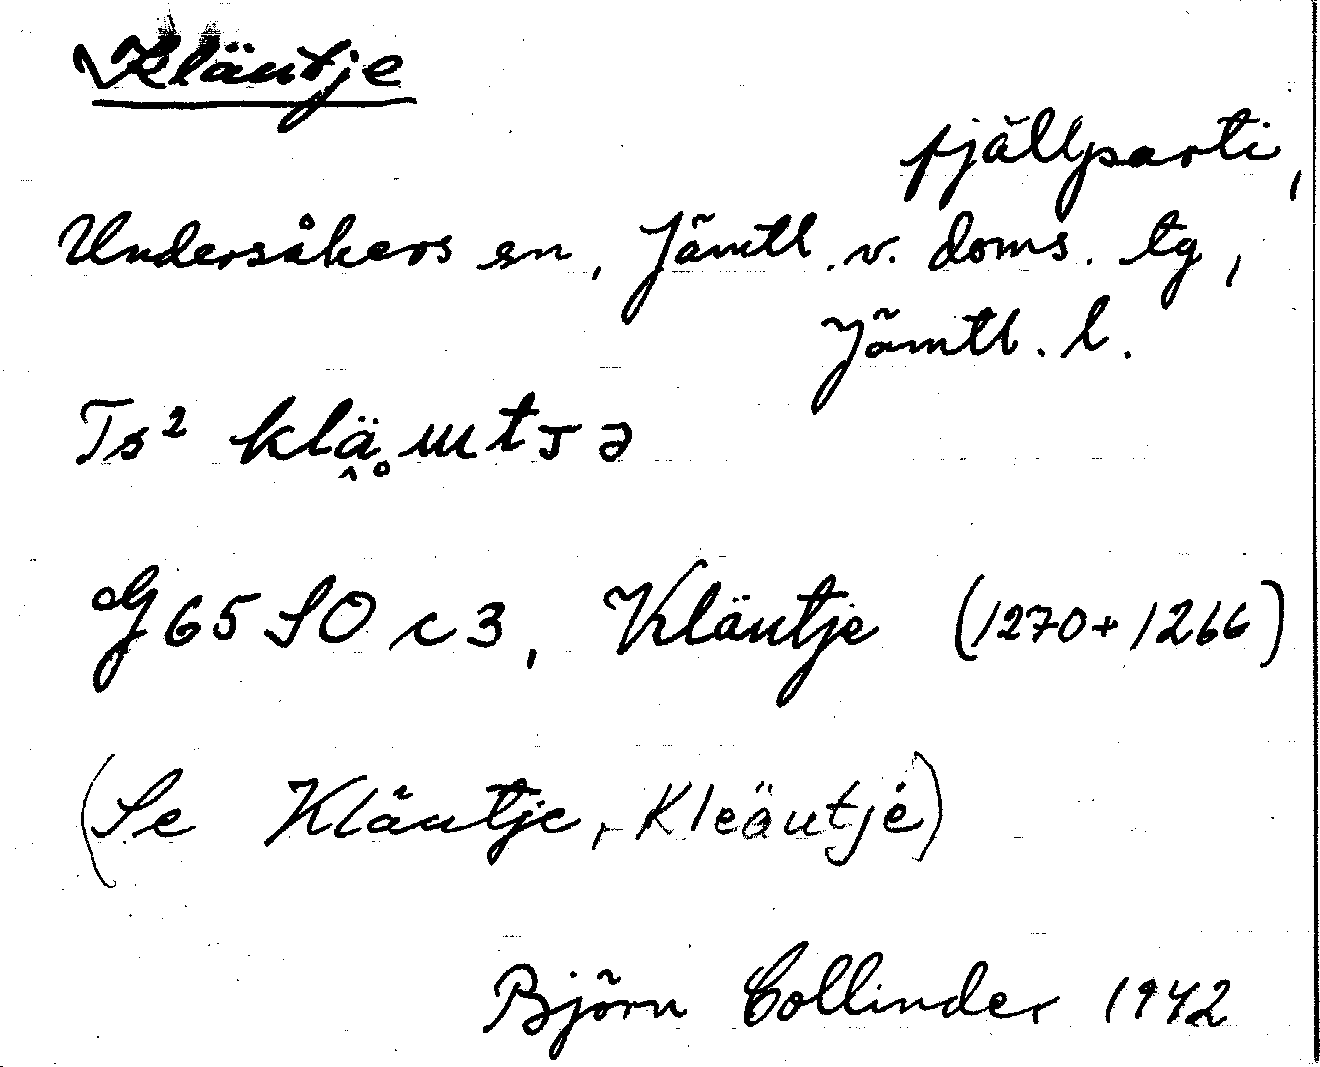 Kläutje
fjällparti,
Undersåkers sn, Jämtl. v. doms. tg,
Jämtl. l.
Ts²
G 65 SO c 3, Kläutje (1270 + 1266)
(Se Kläutje, Kleäutjė)
Björn Collinder 1942